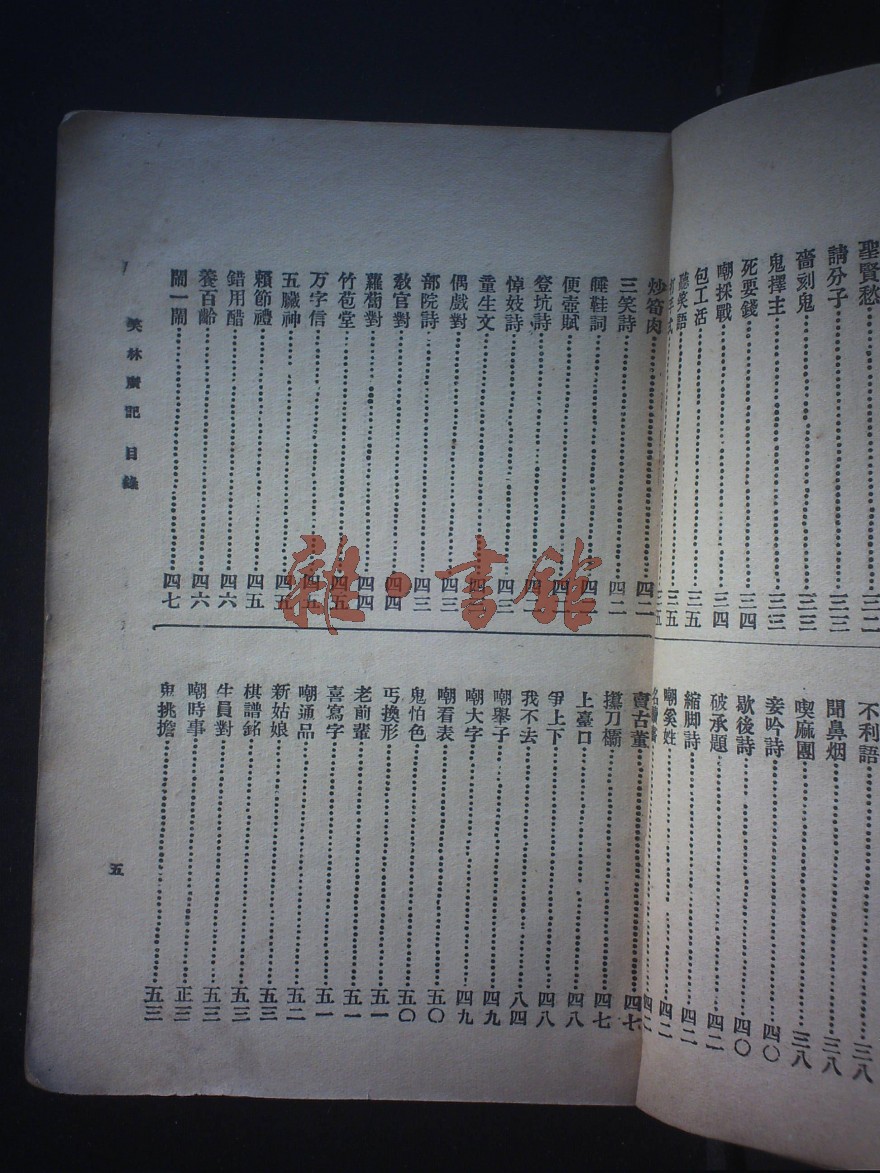 聖賢愁 三二
請分子 三三
嗇刻鬼 三三
鬼擇主 三三
死要錢 三四
嘲採戰 三四
包工活 三五
聽笑語 三五
不利語 三八
聞鼻烟 三八
喫麻團 三八
妾吟詩 四〇
歇後詩 四〇
破承題 四二
縮脚詩 四二
嘲奚姓 四二
炒笋肉 四二
三笑詩 四二
睡鞋詞
便壺賦
登坑詩
悼妓詩 四三
童生文
偶戲對 四三
部院詩 四三
教官對 四四
蘿蔔對 四四
竹苞堂 四五
万字信 四五
五臟神 四五
賴節禮 四五
錯用醋 四六
養百齡 四六
鬧一鬧 四七
賣古董 四七
攥刀欛 四七
上臺口 四八
爭上下 四八
我不去 八四
嘲舉子 四九
嘲大字 四九
嘲看表 五〇
鬼怕色 五〇
丐換形 五一
老前輩 五一
喜寫字 五一
嘲通品 五二
新姑娘 五三
棋譜銘 五三
生員對 五三
嘲時事 正三
鬼挑擔 五三
笑林廣記 目錄
五
雜·書館